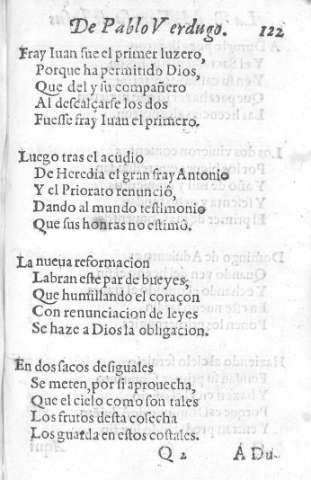 De Pablo Verdugo. 122
Fray Iuan fue el primer luzero,
Porque ha permitido Dios,
Que del y su compañero
Al descalçarse los dos
Fuesse fray Iuan el primero.
Luego tras el acudio
De Heredia el gran fray Antonio
Y el Priorato renunciò,
Dando al mundo testimonio
Que sus honras no estimò.
La nueua reformacion
Labran este par de bueyes,
Que humillando el coraçon
Con renunciacion de leyes
Se haze a Dios la obligacion.
En dos sacos desiguales
Se meten, por si aprouecha,
Que el cielo como son tales
Los frutos desta cosecha
Los guarda en estos costales.
Q 2 A Du-